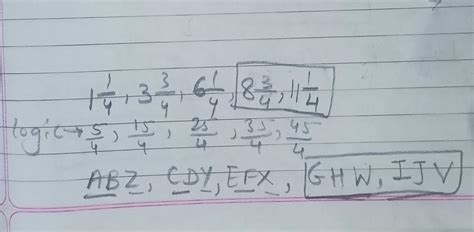 1 1/4, 3 3/4, 6 1/4, 8 3/4, 11 1/4
logic→ 5/4, 15/4, 25/4, 35/4, 45/4
ABZ, CDY, EFX, GHW, IJV